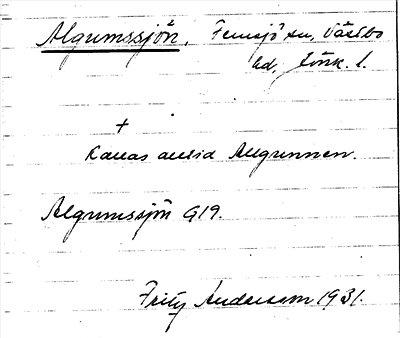 Algrumssjön, Femsjö sn, Västbo
hd, Jönk. l.
+
Kallas alltid Allgrunnen.
Algrumssjön G19.
Fritz Andersson 1931.